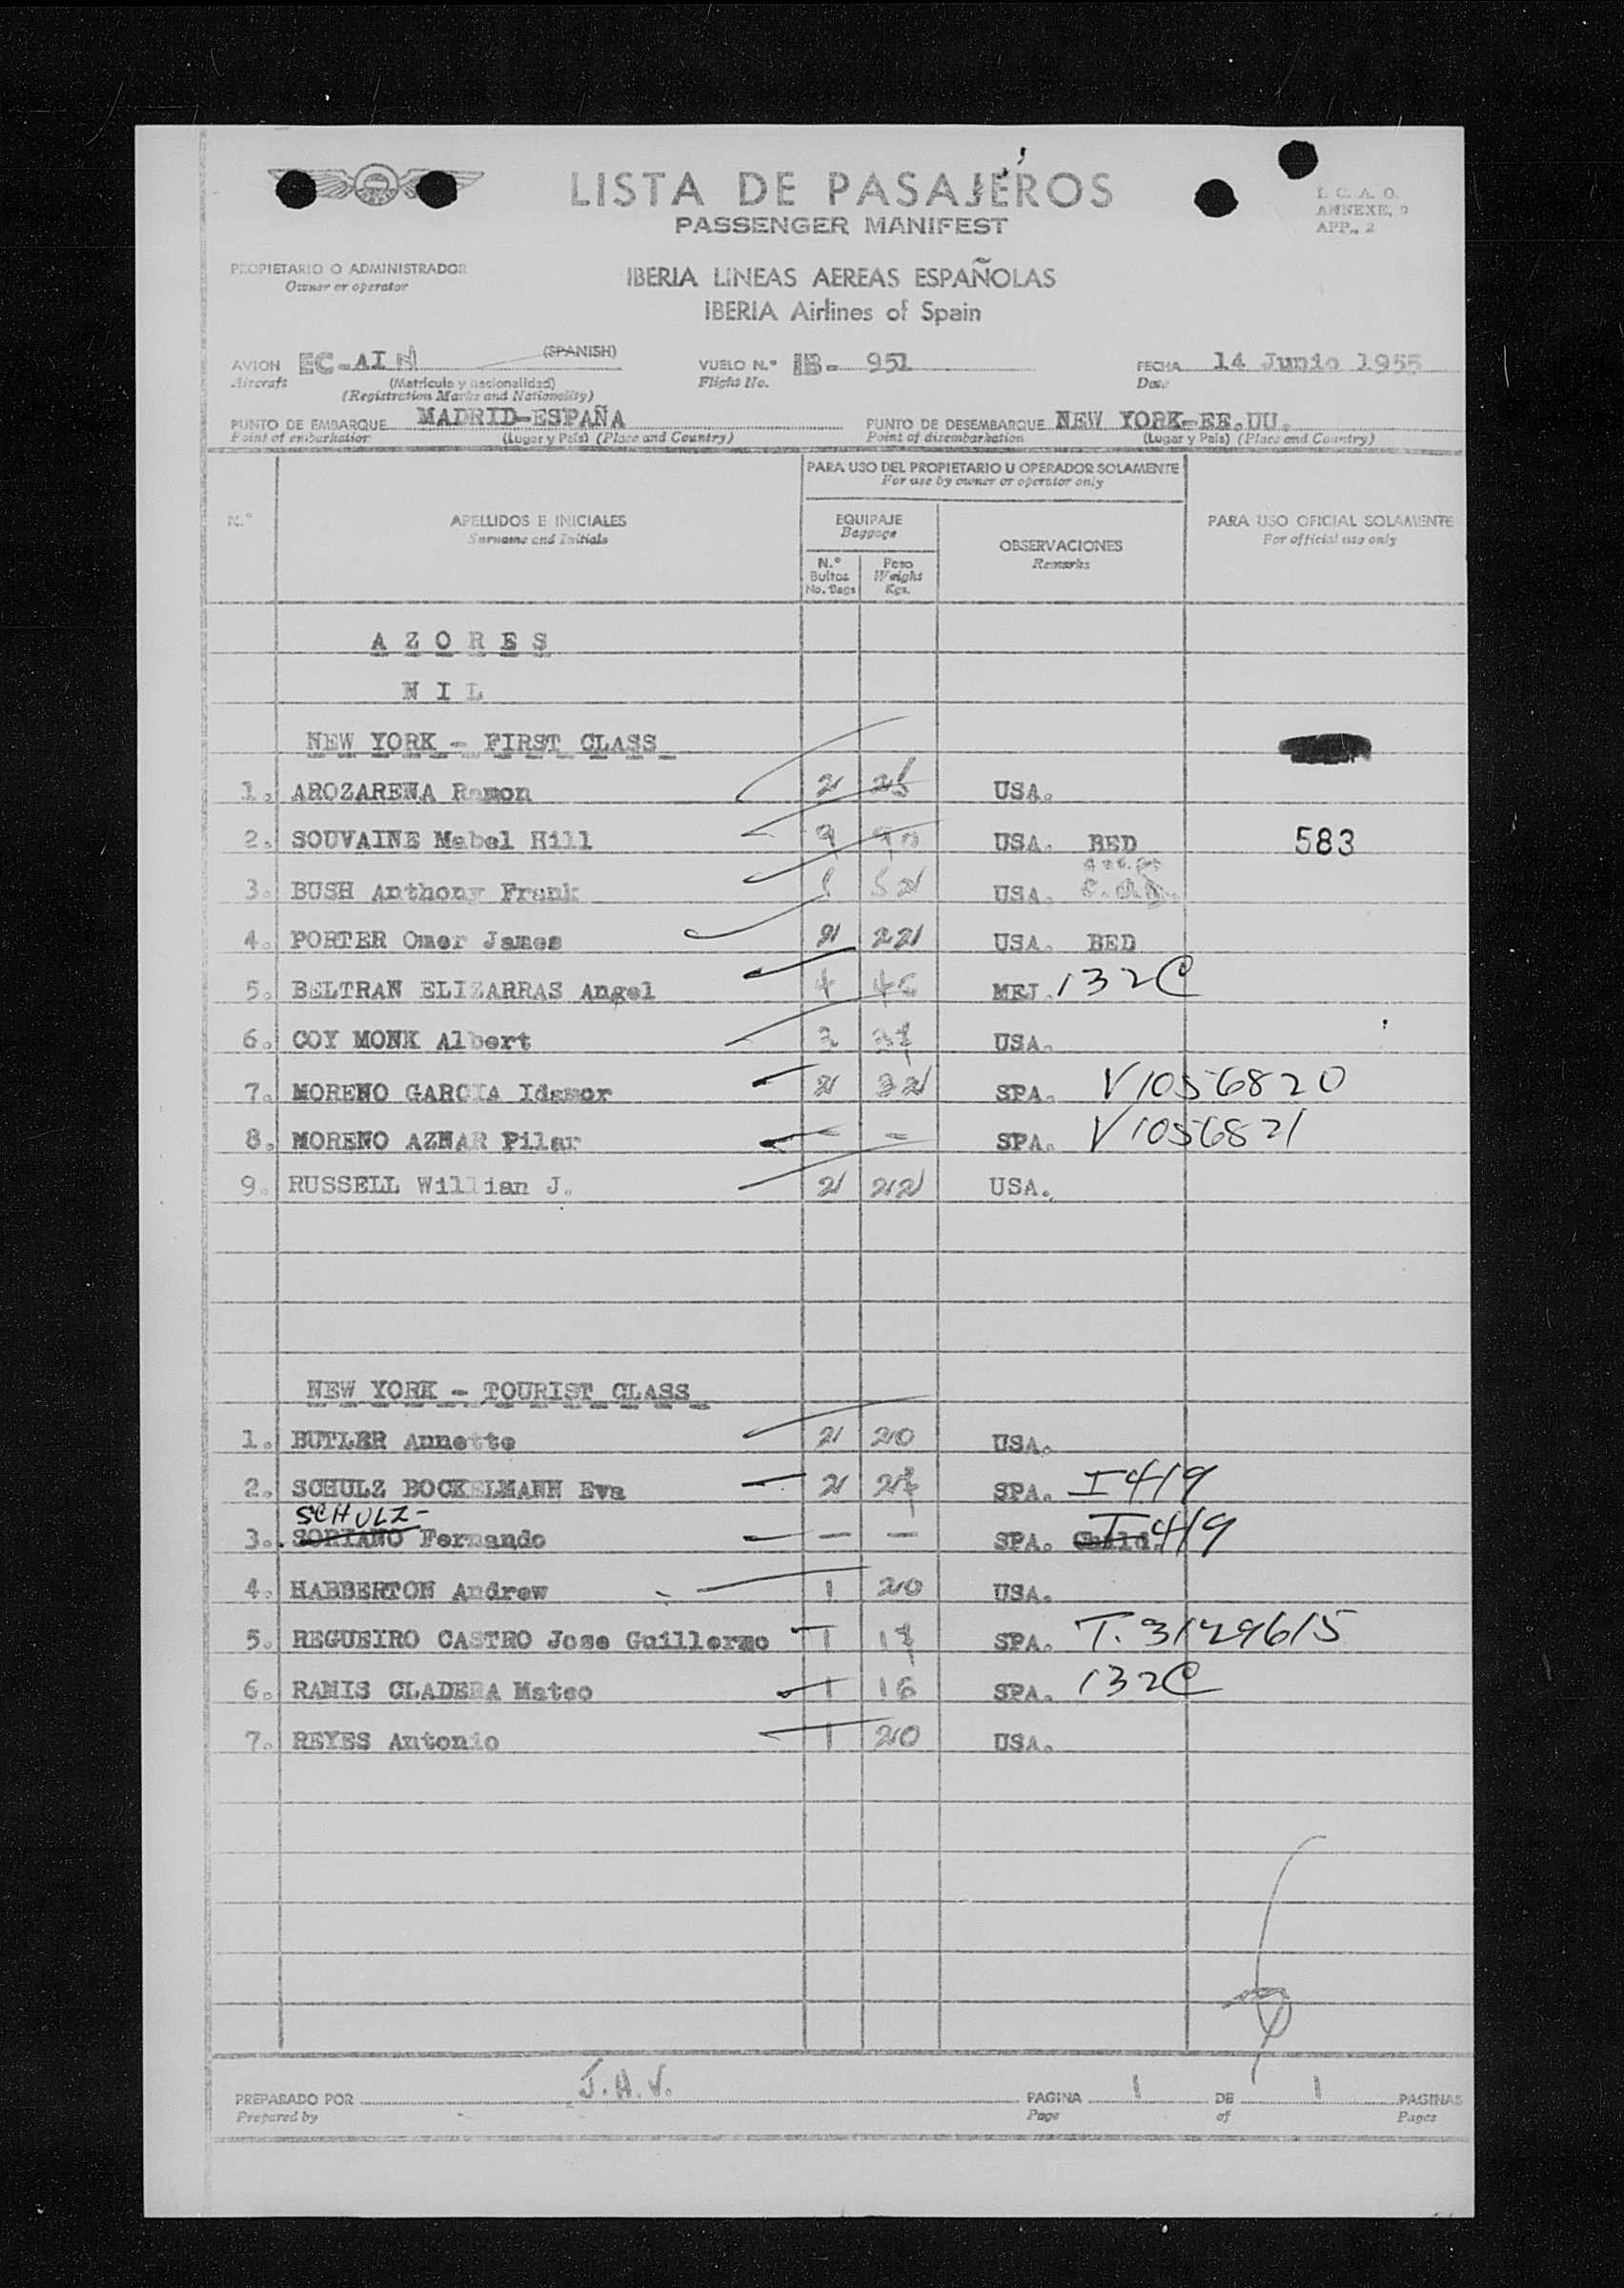 LISTA DE PASAJEROS
PASSENGER MANIFEST
I. C. A. O.
ANNEXE, 9
APP., 2
PROPIETARIO O ADMINISTRADOR
Owner or operator
IBERIA LINEAS AEREAS ESPAÑOLAS
IBERIA Airlines of Spain
AVION EC-AIN (SPANISH) VUELO N.º IB- 951 FECHA 14 Junio 1955
Aircraft (Matrícula y nacionalidad) Flight No. Date
(Registration Marks and Nationality)
PUNTO DE EMBARQUE MADRID-ESPAÑA PUNTO DE DESEMBARQUE NEW YORK-EE.UU.
Point of embarkation (Lugar y País) (Place and Country) Point of disembarkation (Lugar y País) (Place and Country)
PARA USO DEL PROPIETARIO U OPERADOR SOLAMENTE
For use by owner or operator only
N.º APELLIDOS E INICIALES EQUIPAJE OBSERVACIONES PARA USO OFICIAL SOLAMENTE
Surname and Initials Baggage Remarks For official use only
N.º Bultos Peso
No. Bags Weight Kgs.
AZORES
NIL
NEW YORK - FIRST CLASS
1. AROZARENA Ramon 2 USA.
2. SOUVAINE Mabel Hill 9 90 USA. BED 583
3. BUSH Anthony Frank 5 52 USA.
4. PORTER Omer James 2 22 USA. BED
5. BELTRAN ELIZARRAS Angel 4 46 MEJ. 132C
6. COY MONK Albert 3 37 USA.
7. MORENO GARCIA Idamor 2 32 SPA. V1056820
8. MORENO AZNAR Pilar - - SPA. V1056821
9. RUSSELL Willian J. 2 22 USA.
NEW YORK - TOURIST CLASS
1. BUTLER Annette 2 20 USA.
2. SCHULZ BOCKELMANN Eva 2 27 SPA. I419
SCHULZ-
3. SORIANO Fernando - - SPA. Child. I419
4. HABBERTON Andrew 1 20 USA.
5. REGUEIRO CASTRO Jose Guillermo 1 17 SPA. T. 3129615
6. RAMIS CLADERA Mateo 1 16 SPA. 132C
7. REYES Antonio 1 20 USA.
PREPARADO POR J.H.V. PAGINA 1 DE 1 PAGINAS
Prepared by Page of Pages